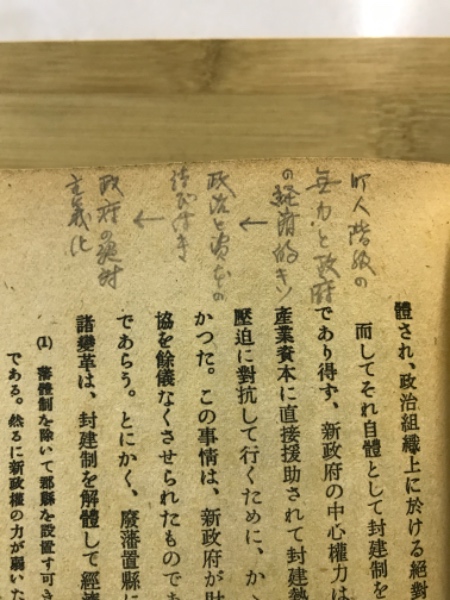 町人階級の
無力と政府
の経済的キソ
←
政治と資本の
結びつき
←
政府の絶対
主義化
體され、政治組織上に於ける絶對
而してそれ自體として封建制を
であり得ず、新政府の中心權力は
産業資本に直接援助されて封建勢
壓迫に對抗して行くために、か
かつた。この事情は、新政府が財
協を餘儀なくさせられたものであ
であらう。とにかく、廢藩置縣に
諸變革は、封建制を解體して經濟
(1) 藩體制を除いて郡縣を設置す可き
である。然るに新政權の力が弱いた